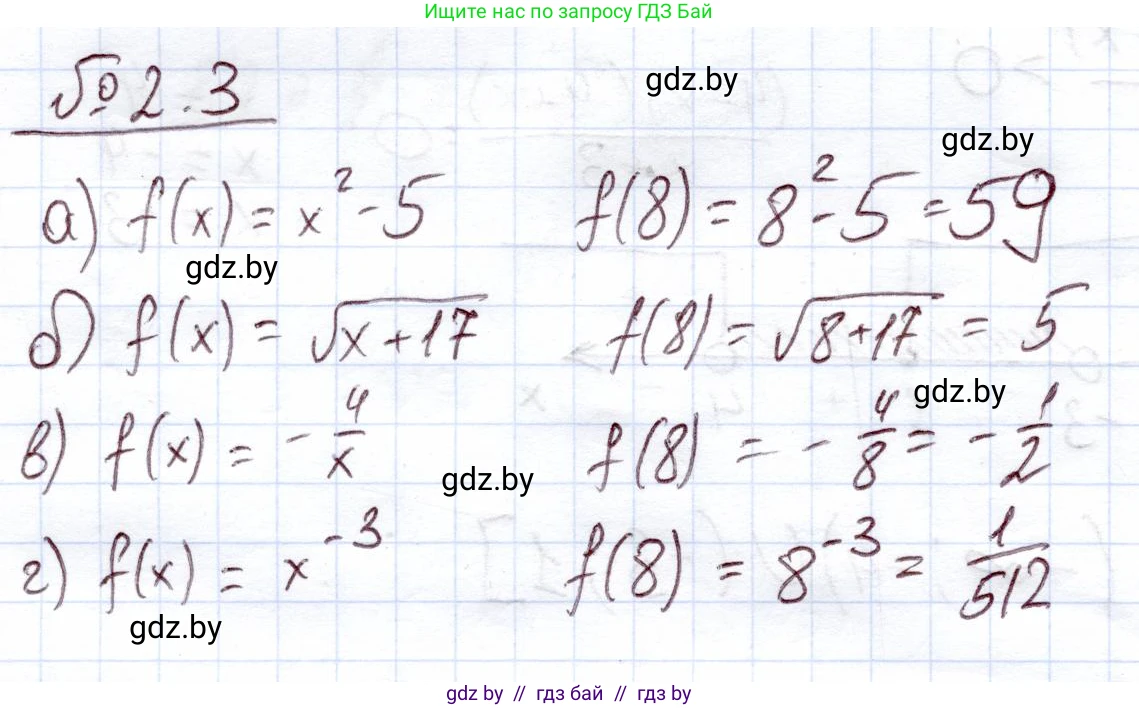 Ищите нас по запросу ГДЗ Бай
№ 2.3
gdz.by
gdz.by
а) f(x) = x² - 5 f(8) = 8² - 5 = 59
gdz.by
б) f(x) = √(x+17) f(8) = √(8+17) = 5
gdz.by
в) f(x) = - 4/x f(8) = - 4/8 = - 1/2
gdz.by
г) f(x) = x⁻³ f(8) = 8⁻³ = 1/512
gdz.by
gdz by // гдз бай // гдз by